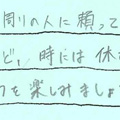 周りの人に頼って
ど、時には休
りを楽しみましょ